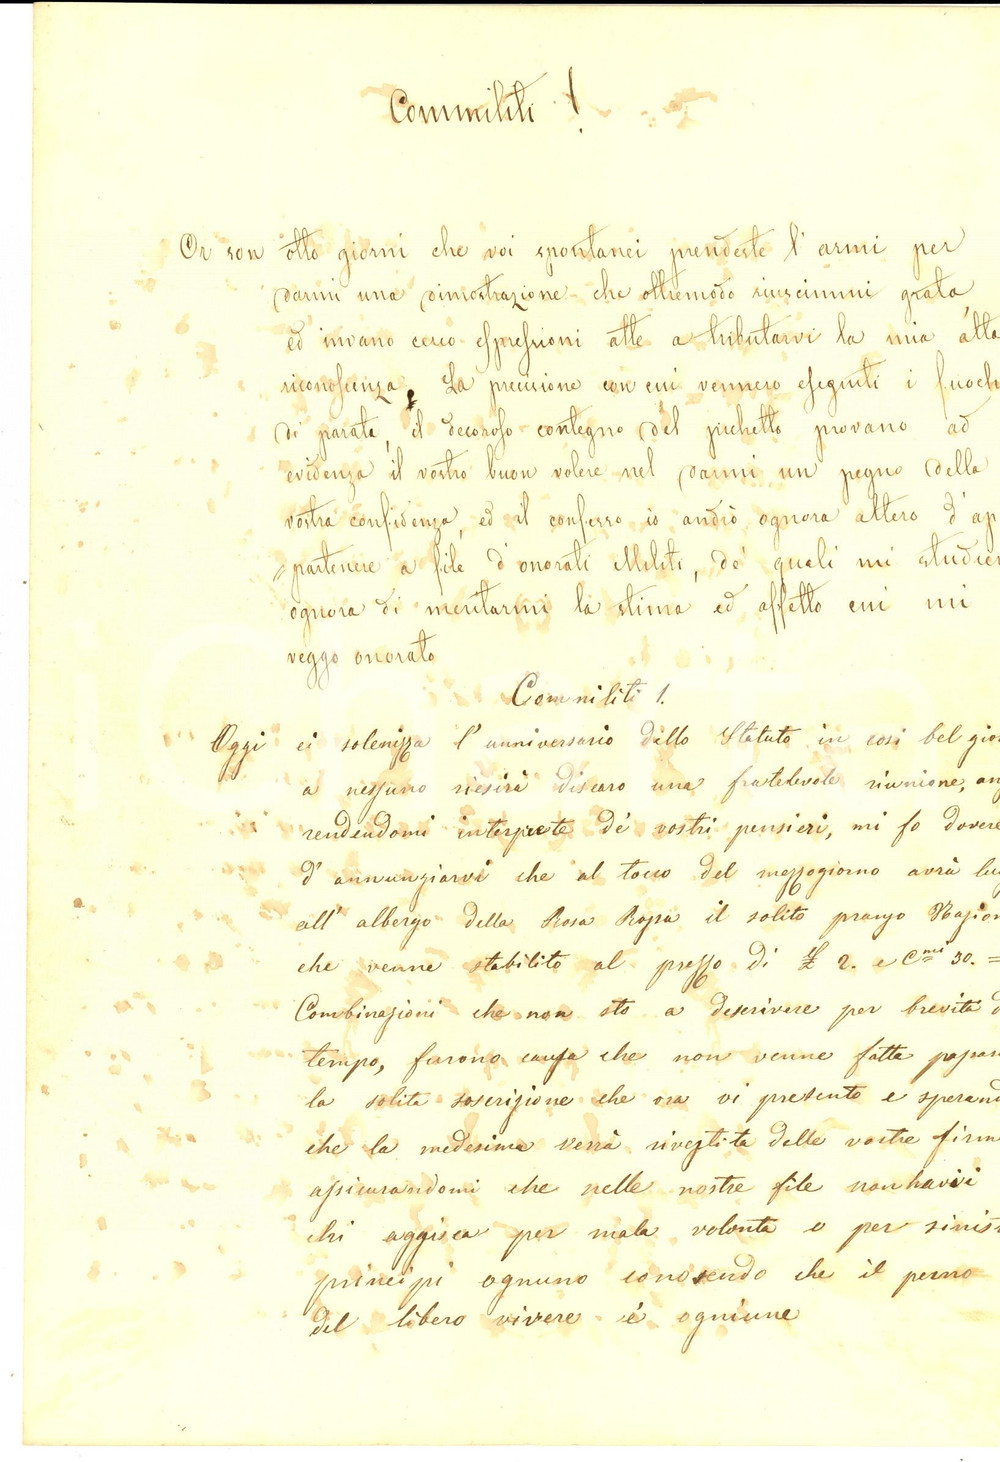 Commiliti !
Or son otto giorni che voi spontanei prendeste l'armi per
darmi una dimostrazione che oltremodo riuscimmi grata,
ed invano cerco espressioni atte a tributarvi la mia álta
riconoscenza. La precisione con cui vennero eseguiti i fuoch
di parata, il decoroso contegno del picchetto provano ad
evidenza il vostro buon volere nel darmi un pegno della
vostra confidenza, ed il confesso io andrò ognora altero d'ap
partenere a file d'onorati Militi, de' quali mi studier
ognora di meritarmi la stima ed affetto cui mi
veggo onorato
Commiliti !.
Oggi si solenizza l'anniversario dello Statuto in così bel gior
a nessuno riesirà discaro una fratelevole riunione, anz
rendendomi interprete de' vostri pensieri, mi fo dovere
d'annunziarvi che al tocco del mezzogiorno avrà luo
all'albergo della Rosa Rossa il solito pranzo Nazion
che venne stabilito al prezzo di £ 2. e C.mi 30. =
Combinazioni che non sto a descrivere per brevità d
tempo, furono causa che non venne fatta passar
la solita soscrizione che ora vi presento e sperand
che la medesima verrà rivestita delle vostre firm
assicurandomi che nelle nostre file non havvi
chi aggisca per mala volontà o per sinist
principi ognuno conoscendo che il perno
del libero vivere é l'unione